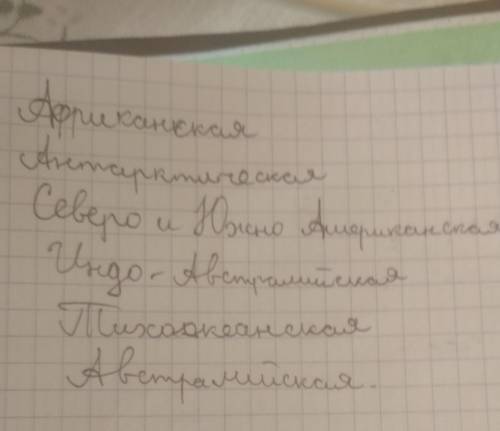 Африканская
Антарктическая
Северо и Южно Американская
Индо-Австралийская
Тихоокеанская
Австралийская.